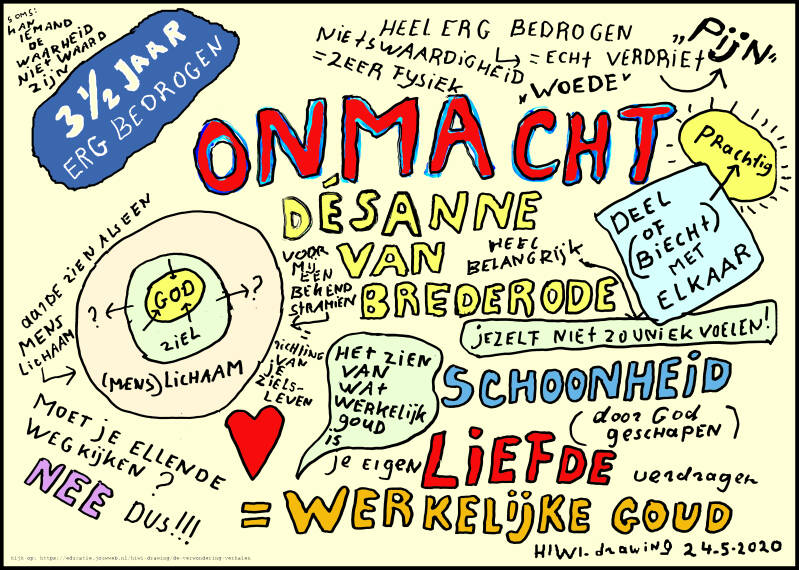 SOMS:
KAN
IEMAND
DE
WAARHEID
NIET WAARD
ZIJN
3 1/2 JAAR
ERG BEDROGEN
HEEL ERG BEDROGEN
NIETSWAARDIGHEID
= ZEER FYSIEK
= ECHT VERDRIET
"WOEDE"
"PIJN"
ONMACHT
DÉSANNE
VAN
BREDERODE
PRACHTIG
DEEL
OF
(BIECHT)
MET
ELKAAR
HEEL
BELANGRIJK
JEZELF NIET ZO UNIEK VOELEN!
AARDE ZIEN ALS EEN
MENS
LICHAAM
GOD
ZIEL
? ?
(MENS) LICHAAM
VOOR
MIJ
EEN
BEKEND
STRAMIEN
=
RICHTING
VAN
JE
ZIELS-
LEVEN
HET ZIEN
VAN
WAT
WERKELIJK
GOUD
is
SCHOONHEID
(door GOD
geschapen)
MOET JE ELLENDE
WEGKIJKEN?
NEE DUS!!!
je eigen LIEFDE verdragen
= WERKELIJKE GOUD
HIWI-drawing 24-5-2020
kijk op: https://educatie.jouwweb.nl/hiwi-drawing/de-verwondering-verhalen